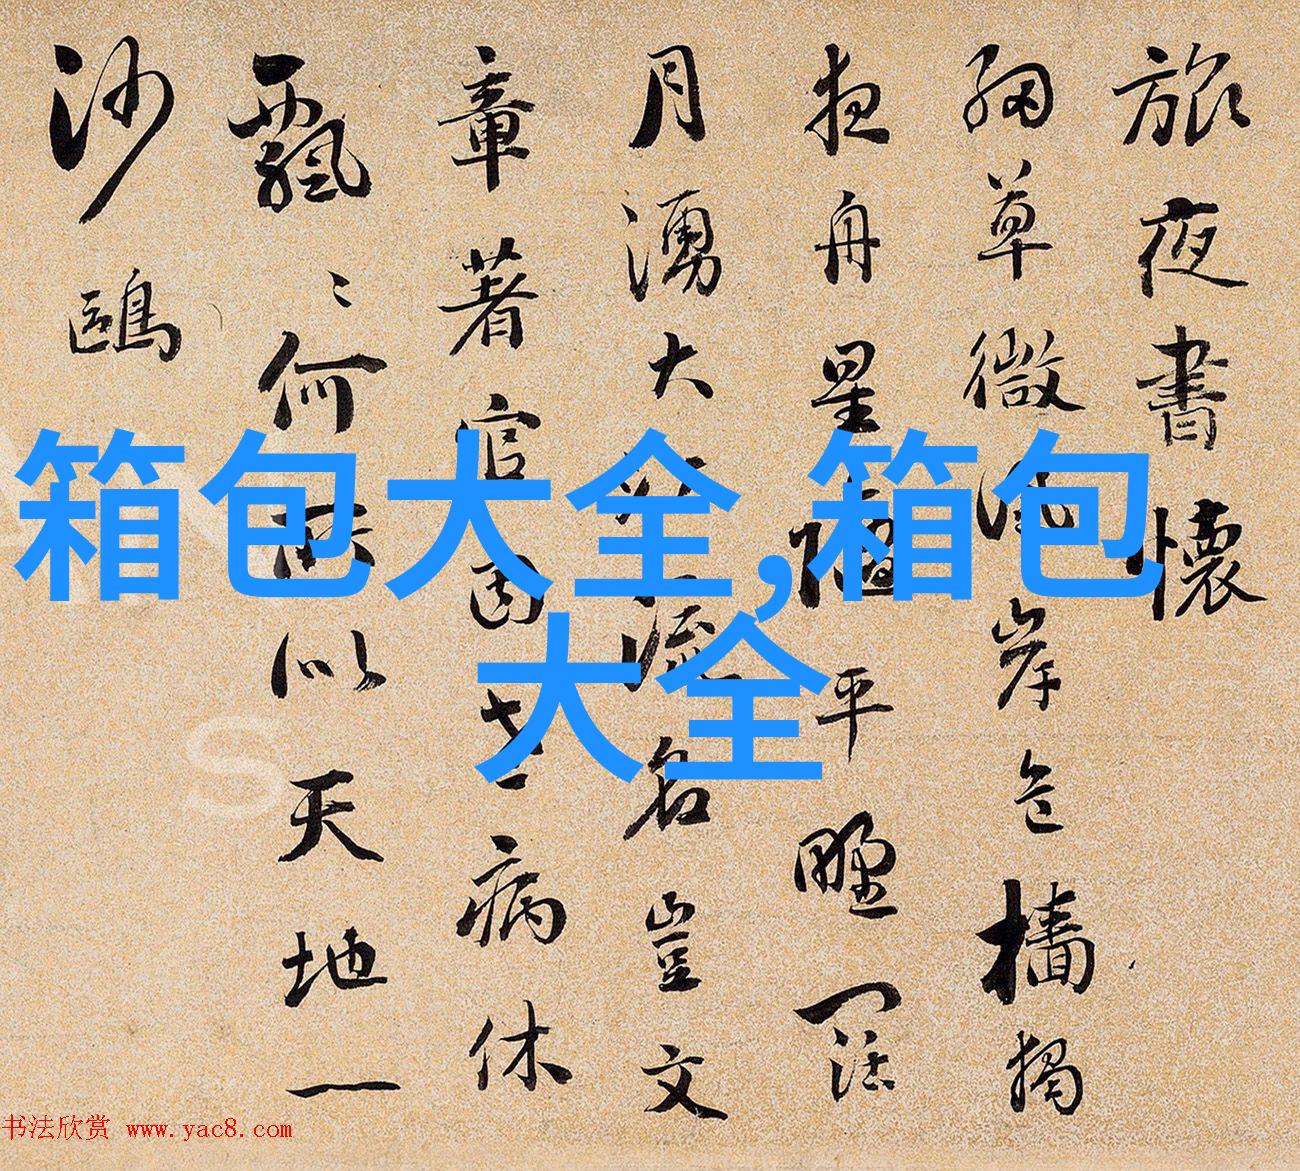 旅夜書懷
細草微風岸危檣獨
夜舟星平野闊
月湧大江流名豈文
章著官因老病休
飄〻何所似天地一
沙鷗
箱包大全,箱包
大全
书法欣赏 www.yac8.com